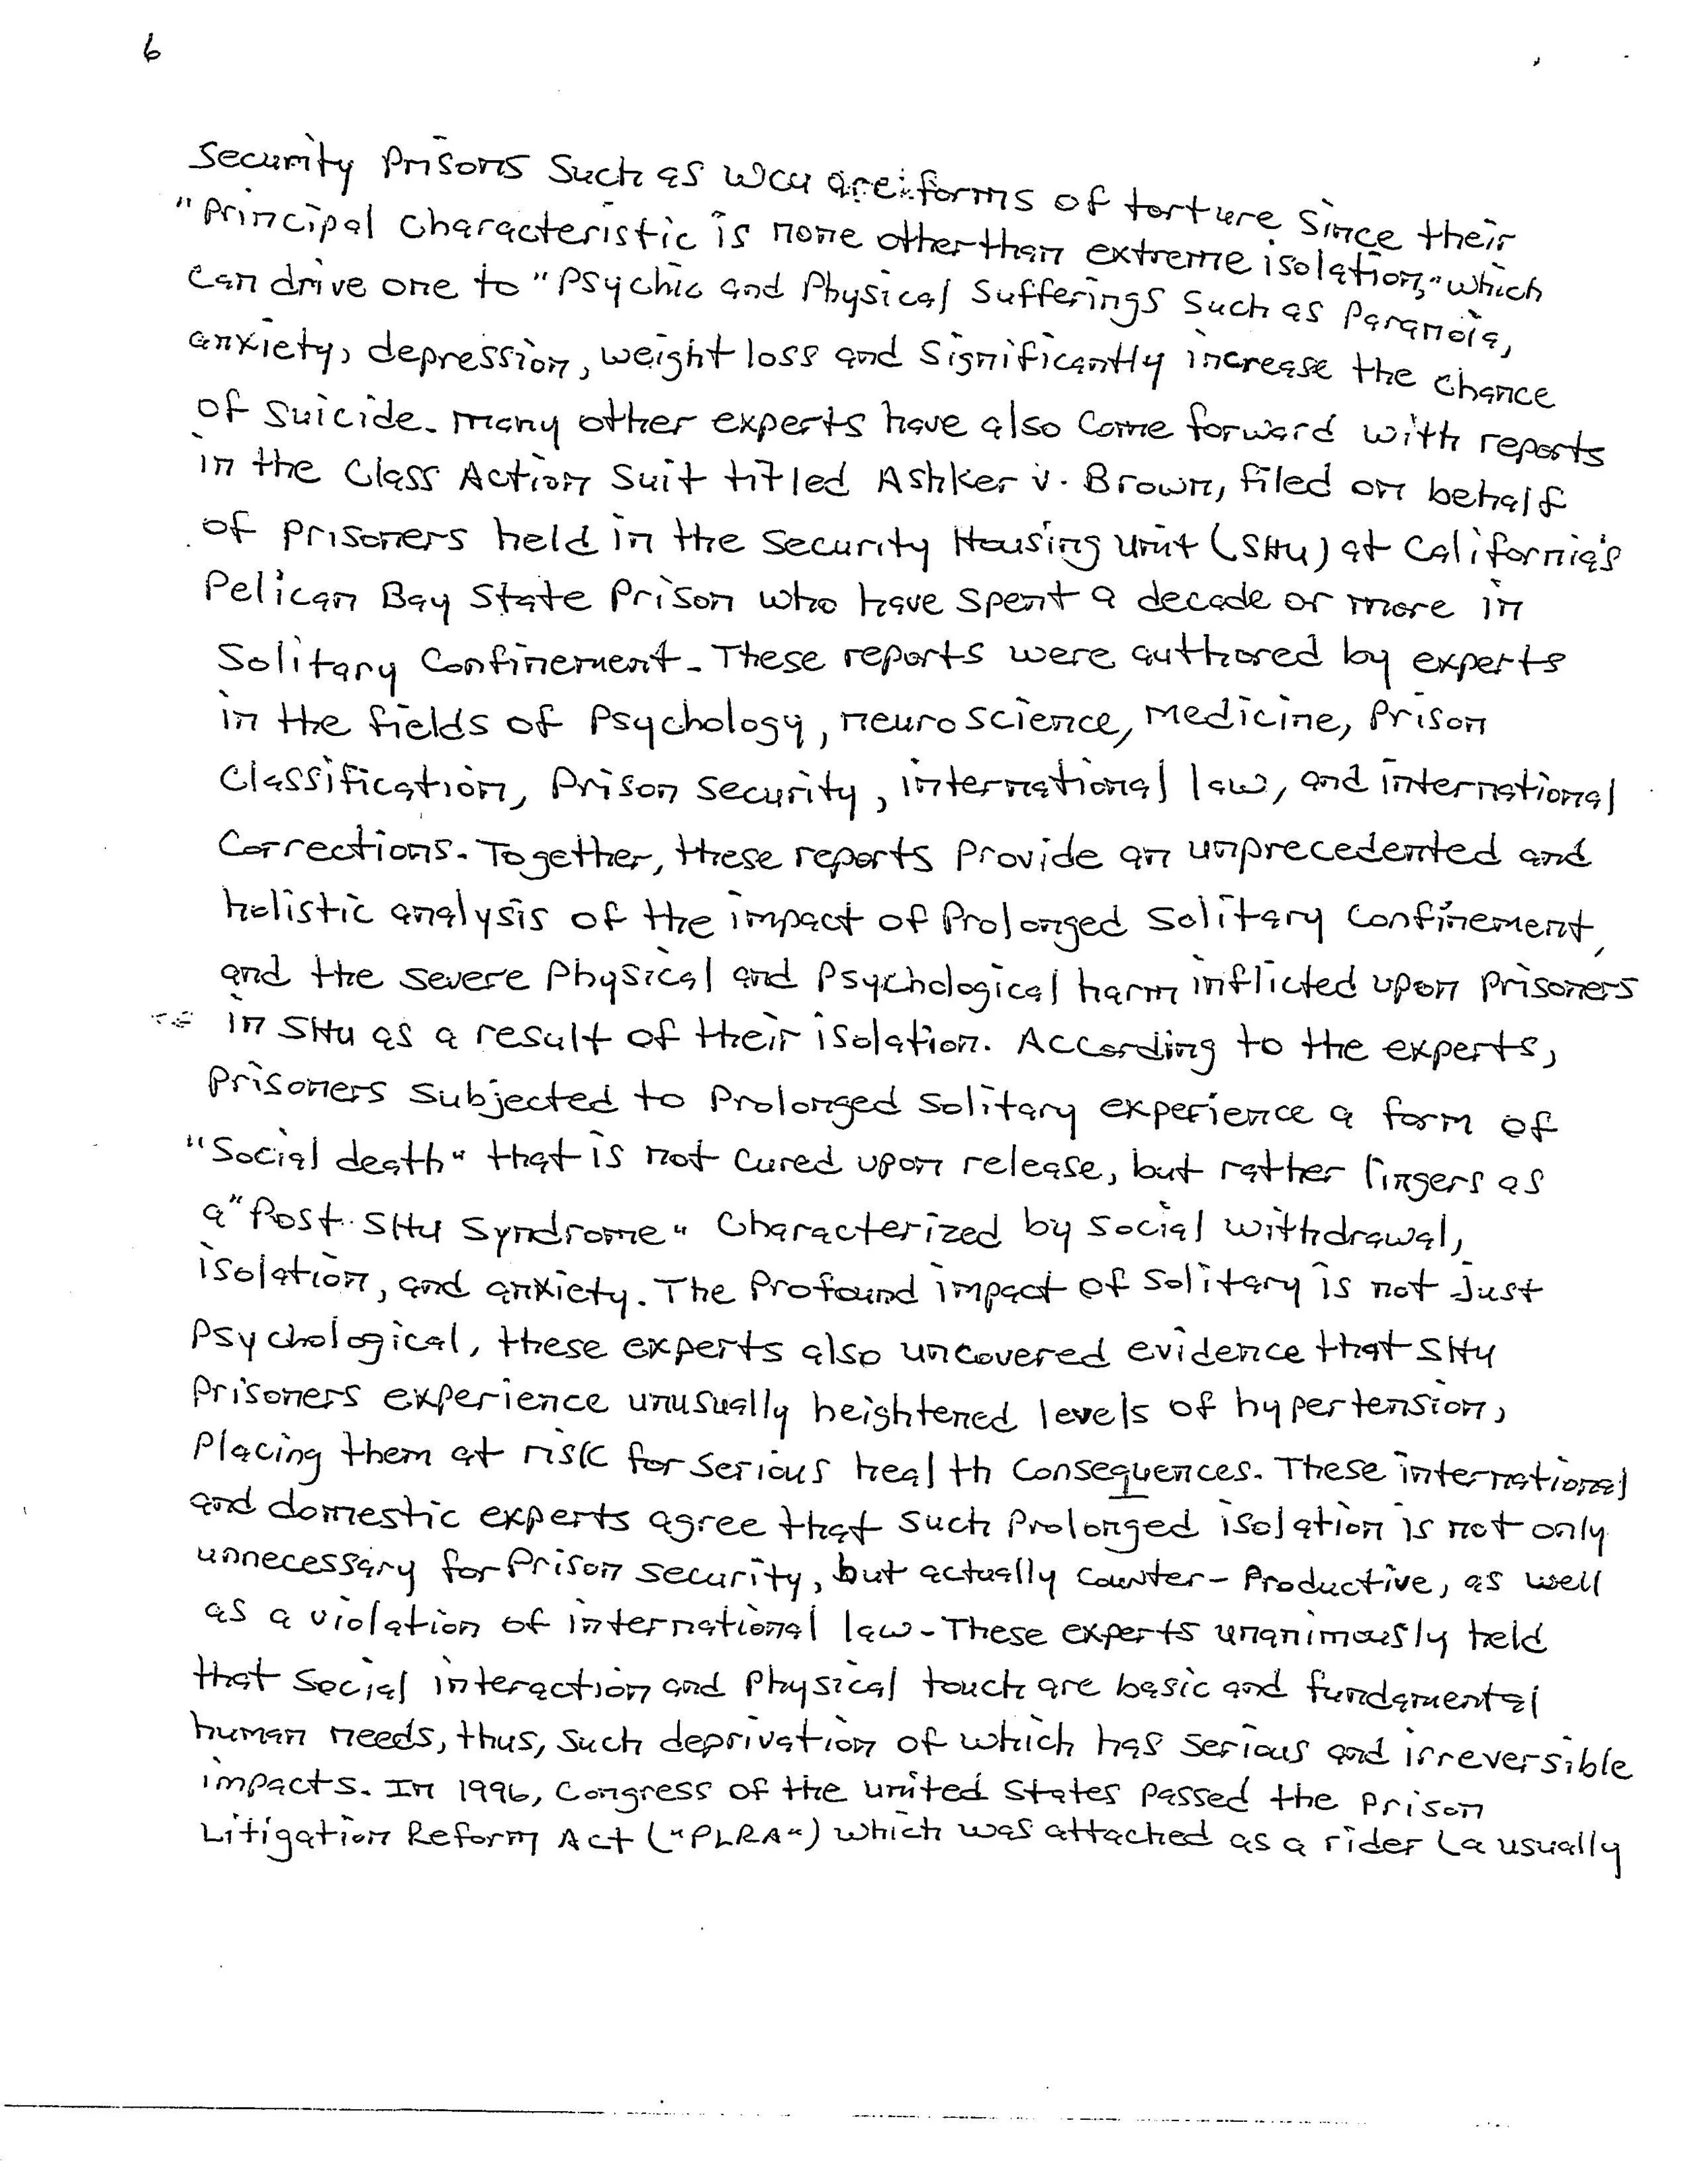 6
Security Prisons Such as WCU are forms of torture Since their
"Principal Characteristic is none other than extreme isolation," which
Can drive one to "Psychic and Physical Sufferings Such as Paranoia,
anxiety, depression, weight loss and Significantly increase the chance
of suicide. many other experts have also Come forward with reports
in the Class Action Suit titled Ashker v. Brown, filed on behalf
of Prisoners held in the Security Housing Unit (SHU) at California's
Pelican Bay State Prison who have spent a decade or more in
Solitary Confinement. These reports were authored by experts
in the fields of Psychology, neuroscience, Medicine, Prison
Classification, Prison Security, international law, and international
Corrections. Together, these reports Provide an unprecedented and
holistic analysis of the impact of Prolonged Solitary Confinement,
and the severe Physical and Psychological harm inflicted upon Prisoners
in SHU as a result of their isolation. According to the experts,
Prisoners Subjected to Prolonged Solitary experience a form of
"Social death" that is not Cured upon release, but rather lingers as
a "Post SHU Syndrome" Characterized by Social withdrawal,
isolation, and anxiety. The Profound impact of Solitary is not Just
Psychological, these experts also uncovered evidence that SHU
Prisoners experience unusually heightened levels of hypertension,
Placing them at risk for Serious health Consequences. These international
and domestic experts agree that Such Prolonged isolation is not only
unnecessary for Prison Security, but actually Counter-Productive, as well
as a violation of international law. These experts unanimously held
that Social interaction and Physical touch are basic and fundamental
human needs, thus, Such deprivation of which has Serious and irreversible
impacts. In 1996, Congress of the United States Passed the Prison
Litigation Reform Act ("PLRA") which was attached as a rider (a usually